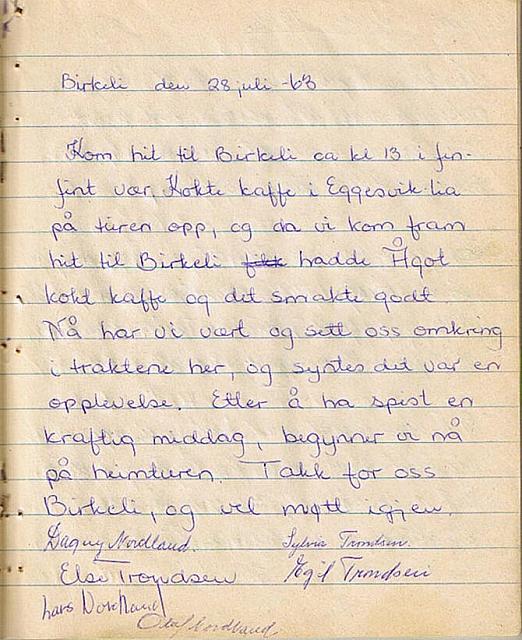 Birkeli den 28 juli -63
Kom hit til Birkeli ca kl 13 i fin-
fint vær, Kokte kaffe i Eggesvik-lia
på turen opp, og da vi kom fram
hit til Birkeli fikk hadde Ågot
kokt kaffe og det smakte godt
Nå har vi vært og sett oss omkring
i traktene her, og syntes det var en
opplevelse. Etter å ha spist en
kraftig middag, begynner vi nå
på heimturen. Takk for oss
Birkeli, og vel møtt igjen.
Dagny Nordland. Sylvia Trondsen.
Else Trondsen Egil Trondsen
Lars Nordland
Olaf Nordland